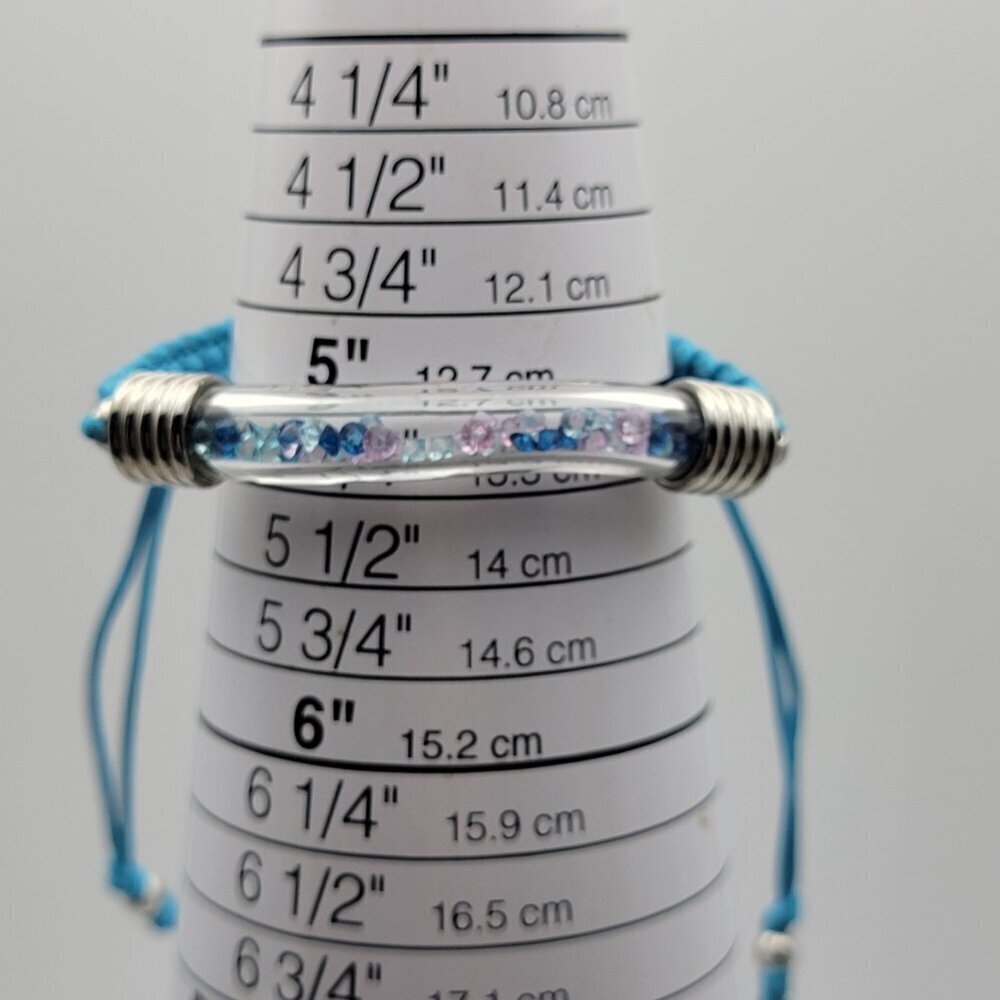 4 1/4" 10.8 cm
4 1/2" 11.4 cm
4 3/4" 12.1 cm
5" 12.7 cm
5 1/2" 14 cm
5 3/4" 14.6 cm
6" 15.2 cm
6 1/4" 15.9 cm
6 1/2" 16.5 cm
6 3/4" 17.1 cm